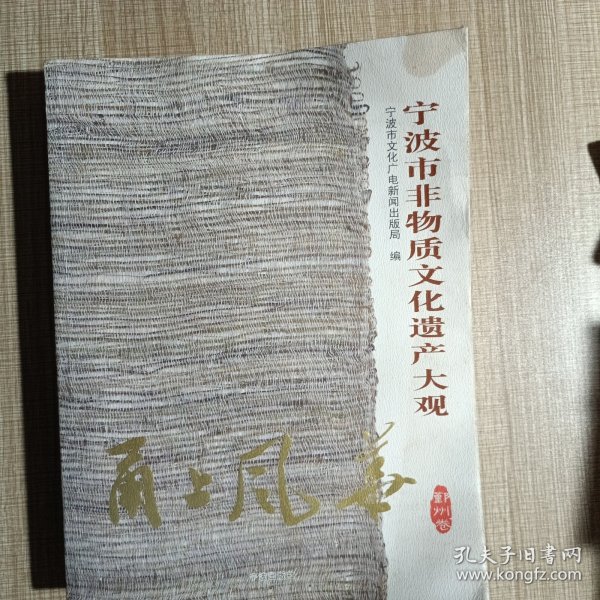 宁波市非物质文化遗产大观
宁波市文化广电新闻出版局 编
甬上风华
鄞州卷
孔夫子旧书网
www.kongfz.com